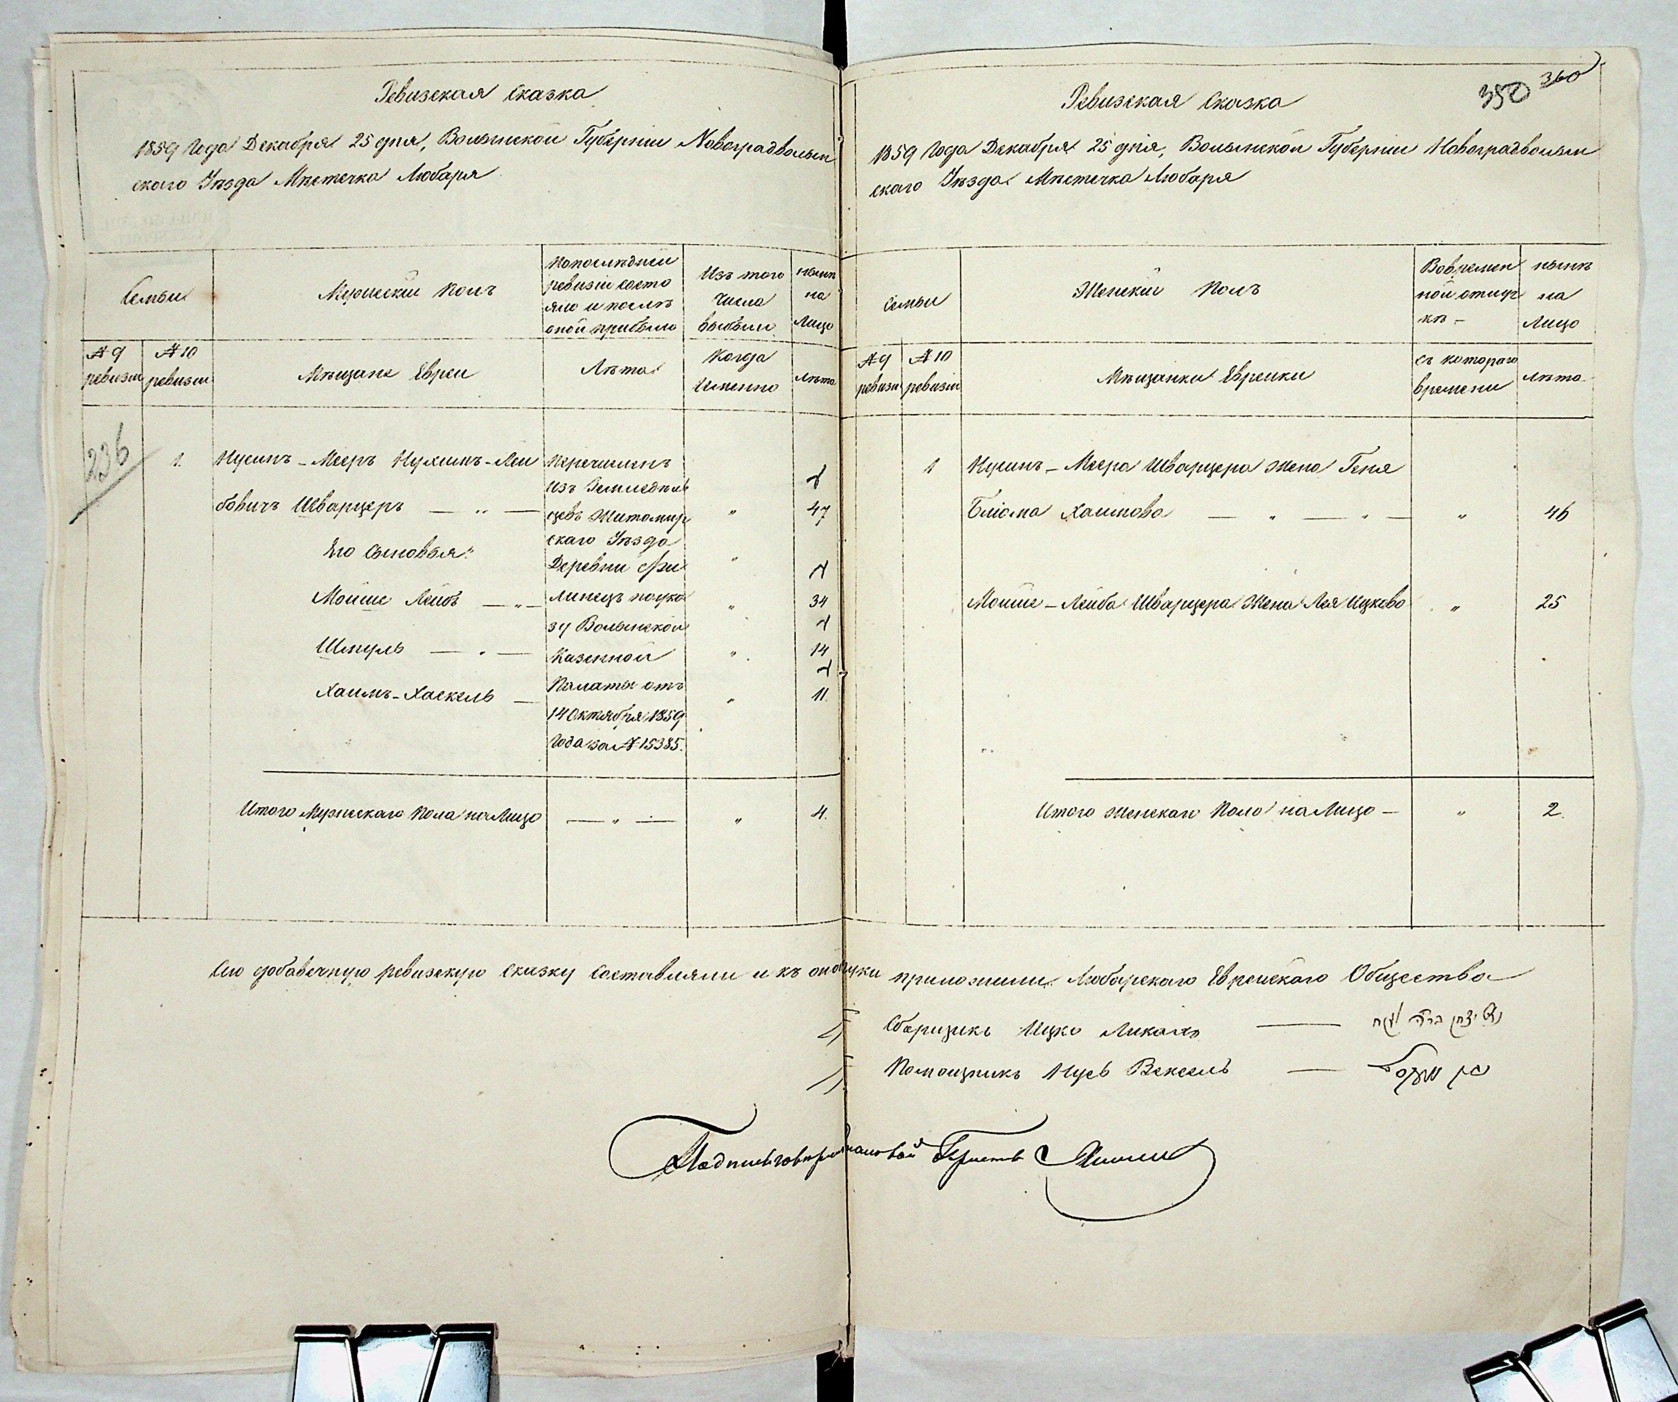 Ревизская Сказка
1859 Года Декабря 25 дня, Волынской Губернии Новоградволын
скаго Уѣзда Мѣстечка Любаря
Семьи
Мужескій Полъ
Попослѣдней
ревизіи состо
яло и послѣ
оной прибыло
Изъ того
числа
выбыли
нынѣ
на
лицо
№ 9
ревизіи
№ 10
ревизіи
Мѣщане Евреи
Лѣта
Когда
именно
Лѣта
236
1. Нусинъ-Мееръ Нухимъ-Леи
бовичъ Шварцеръ — „ — „ 47
Его Сыновья: „
Мойше Лейбъ — „ — „ 34
Шмуль — „ — „ 14
Хаимъ-Хаскель — „ 11.
Перечисленъ
изъ Земледѣль
цевъ Житомир
скаго Уѣзда
Деревни
линецъ поука
зу Волынской
Казенной
Палаты отъ
14 Октября 1859
Года за № 15385.
Итого Мужескаго Пола на Лицо — „ — „ 4.
350 360
Ревизская Сказка
1859 Года Декабря 25 дня, Волынской Губерніи Новоградволын
скаго Уѣзда Мѣстечка Любаря
Семьи
Женскій Полъ
Вовремен
ной отлуч
кѣ –
нынѣ
на
Лицо
№ 9
ревизіи
№ 10
ревизіи
Мѣщанки Еврейки
съ котораго
времени
лѣта
1 Нусинъ-Меера Шварцера жена Геня
Блюма Хаимова — „ — „ — „ 46
Мойше-Лейба Шварцера Жена Лея Ицкова „ 25
Итого Женскаго Пола на Лицо — „ 2.
Сію добавочную ревизскую сказку составляли и къ оной руки приложили Любарскаго Еврейскаго Общества
Сборщикъ Ицко —
Помощникъ Нусь Вексель —